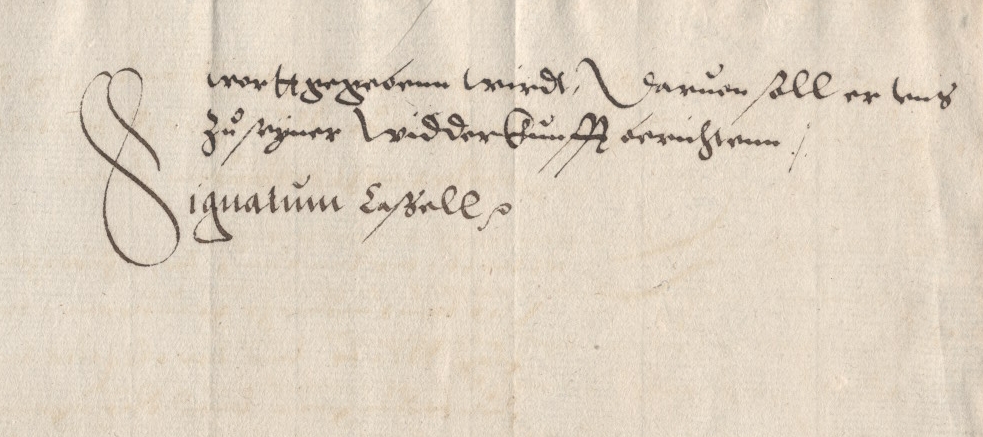 wortt gegebenn wirdt, Daruon soll er vns
Zu seyner widderkunfft berichtenn /
Signatum Cassell